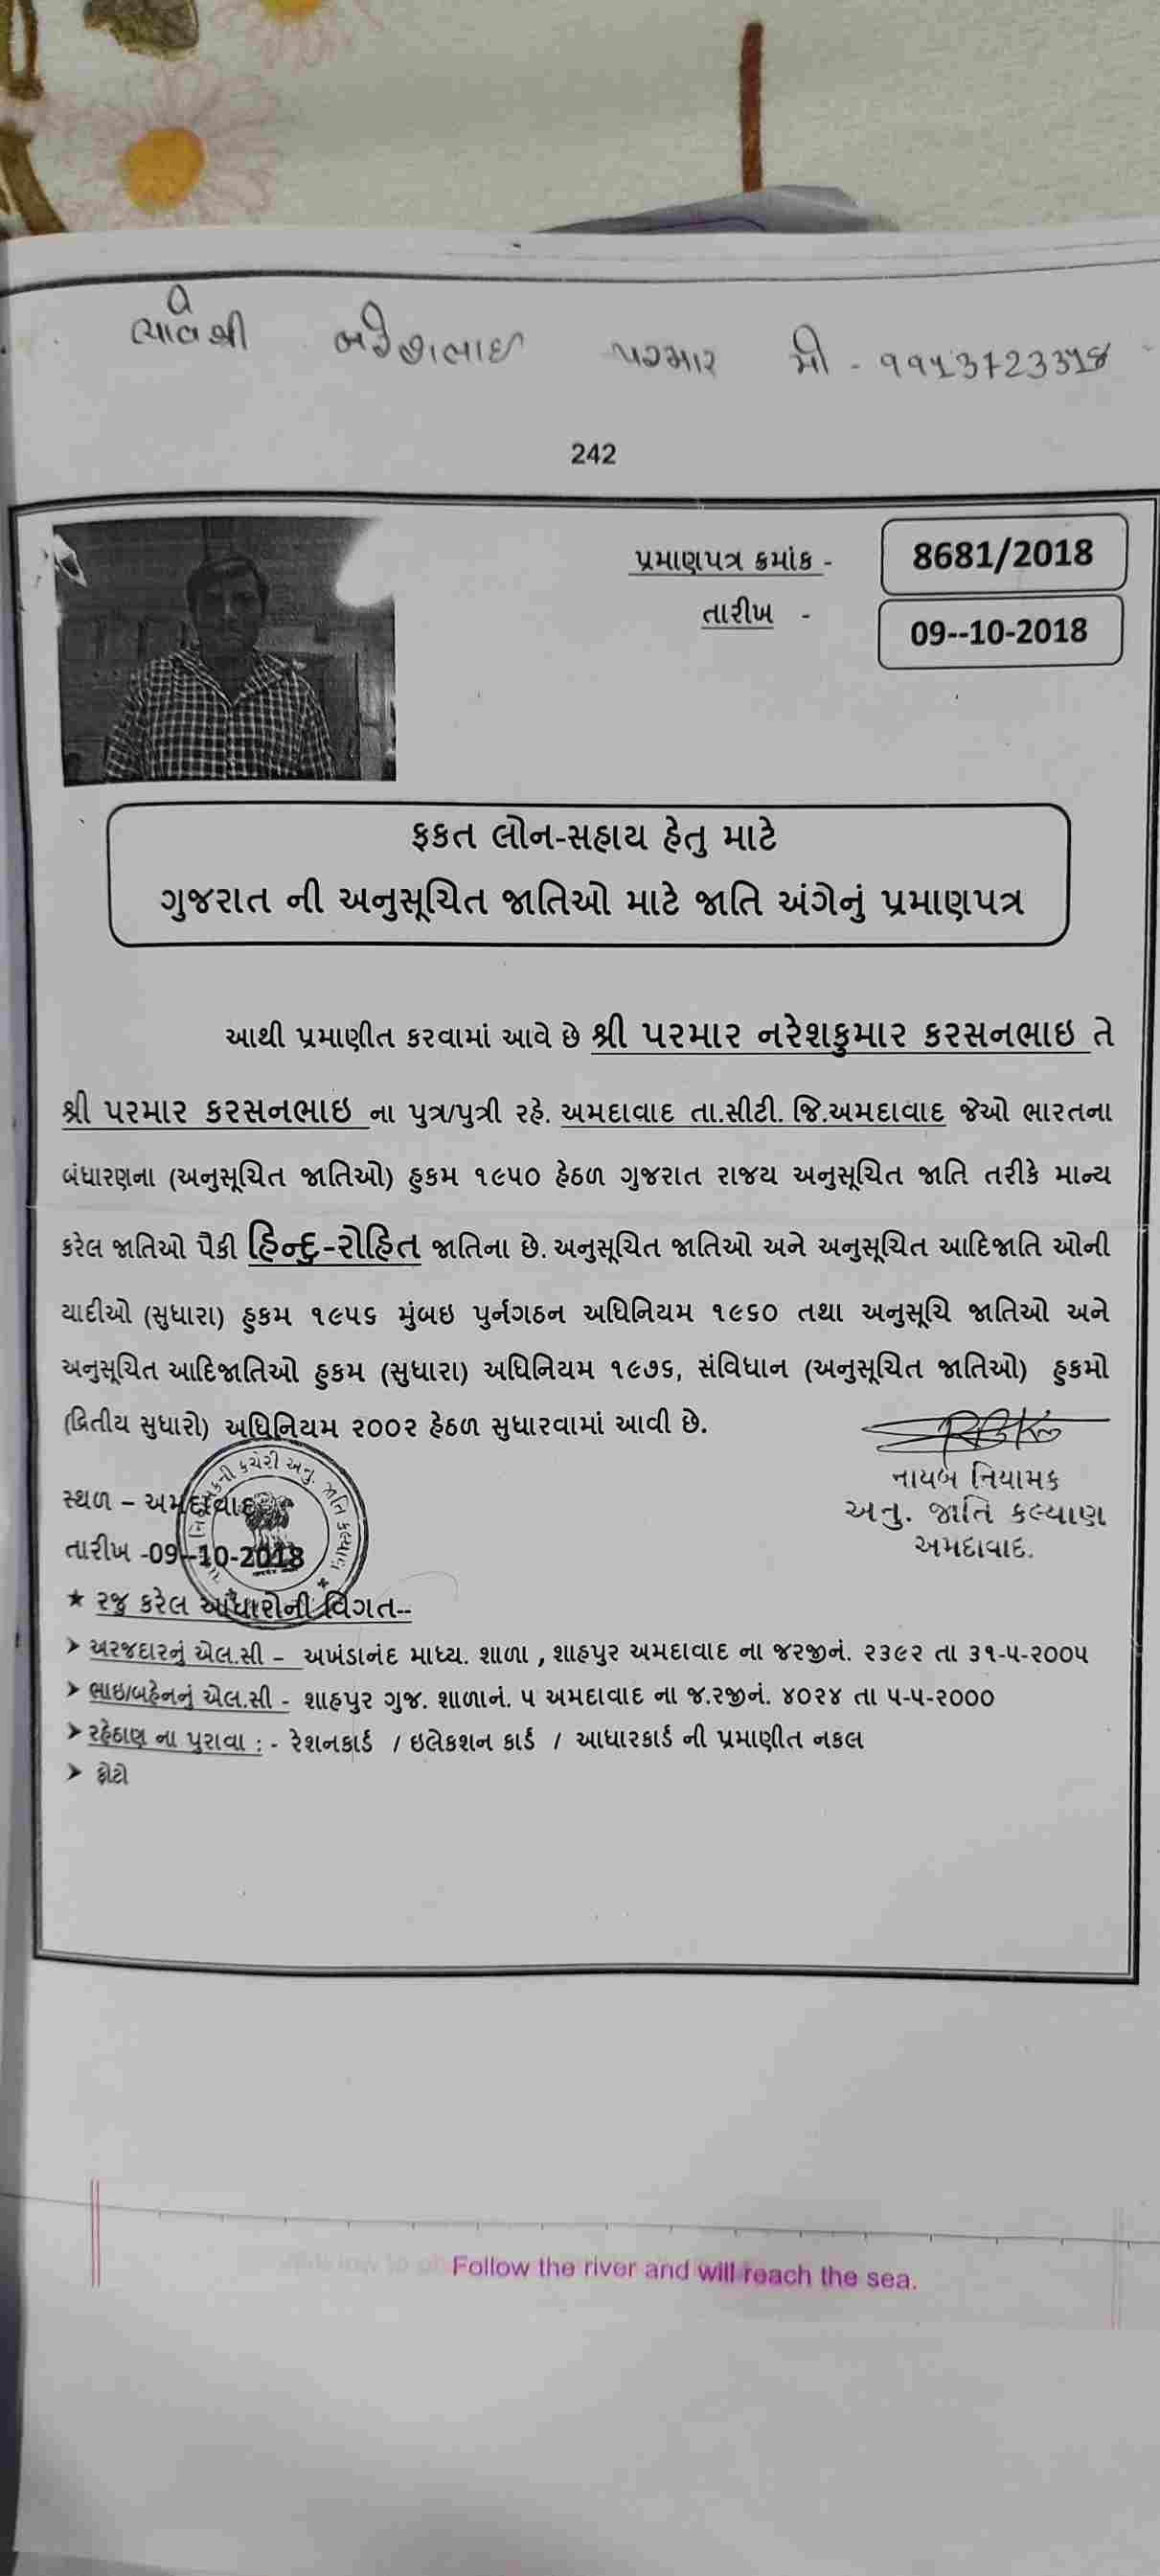 પરમાર મો -
242
પ્રમાણપત્ર ક્રમાંક - 8681/2018
તારીખ - 09--10-2018
ફકત લોન-સહાય હેતુ માટે
ગુજરાત ની અનુસૂચિત જાતિઓ માટે જાતિ અંગેનું પ્રમાણપત્ર
આથી પ્રમાણીત કરવામાં આવે છે શ્રી પરમાર નરેશકુમાર કરસનભાઇ તે
શ્રી પરમાર કરસનભાઇ ના પુત્ર/પુત્રી રહે. અમદાવાદ તા.સીટી. જિ.અમદાવાદ જેઓ ભારતના
બંધારણના (અનુસૂચિત જાતિઓ) હુકમ ૧૯૫૦ હેઠળ ગુજરાત રાજય અનુસૂચિત જાતિ તરીકે માન્ય
કરેલ જાતિઓ પૈકી હિન્દુ-રોહિત જાતિના છે. અનુસૂચિત જાતિઓ અને અનુસૂચિત આદિજાતિ ઓની
યાદીઓ (સુધારા) હુકમ ૧૯૫૬ મુંબઇ પુર્નગઠન અધિનિયમ ૧૯૬૦ તથા અનુસૂચિ જાતિઓ અને
અનુસૂચિત આદિજાતિઓ હુકમ (સુધારા) અધિનિયમ ૧૯૭૬, સંવિધાન (અનુસૂચિત જાતિઓ) હુકમો
(દ્રિતીય સુધારો) અધિનિયમ ૨૦૦૨ હેઠળ સુધારવામાં આવી છે.
નાયબ નિયામક
અનુ. જાતિ કલ્યાણ
અમદાવાદ.
સ્થળ – અમદાવાદ
તારીખ -09--10-2018
કચેરી અનુ. જાતિ કલ્યાણ
★ રજુ કરેલ આધારોની વિગત--
➢ અરજદારનું એલ.સી – અખંડાનંદ માધ્ય. શાળા , શાહપુર અમદાવાદ ના જરજીનં. ૨૩૯૨ તા ૩૧-૫-૨૦૦૫
➢ ભાઇ/બહેનનું એલ.સી - શાહપુર ગુજ. શાળાનં. ૫ અમદાવાદ ના જ.રજીનં. ૪૦૨૪ તા ૫-૫-૨૦૦૦
➢ રહેઠાણ ના પુરાવા : - રેશનકાર્ડ / ઇલેકશન કાર્ડ / આધારકાર્ડ ની પ્રમાણીત નકલ
➢ ફોટો
Follow the river and will reach the sea.